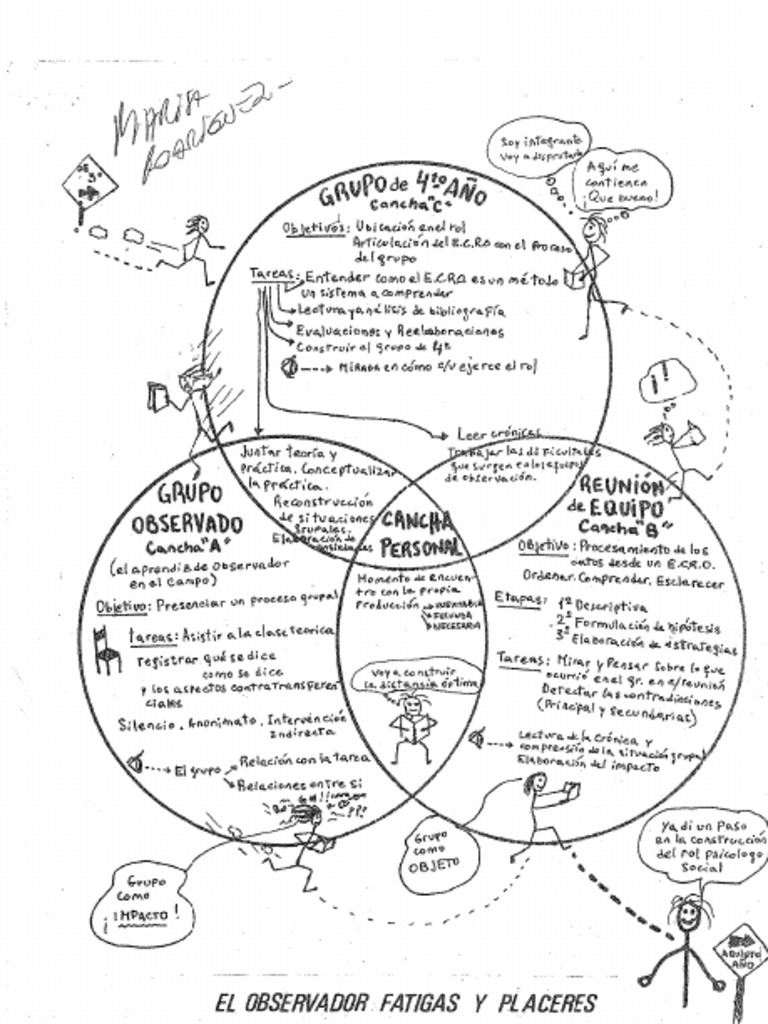 MARISA
RODRIGUEZ
DE
3º
Soy integrante
voy a disfrutarlo
Aquí me
contienen
¡Que bueno!
GRUPO de 4to AÑO
Cancha "C"
Objetivos: Ubicación en el rol
Articulación del E.C.R.O con el proceso
del grupo
Tareas: Entender como el E.C.R.O es un método
un sistema a comprender
Lectura y análisis de bibliografía
Evaluaciones y Reelaboraciones
Construir el grupo de 4º
MIRADA en cómo c/u ejerce el rol
¡!
Leer crónicas
Trabajar las dificultades
que surgen en los equipos
de observación.
Juntar teoría y
práctica. Conceptualizar
la práctica.
Reconstrucción
de situaciones
grupales.
Elaboración de
GRUPO
OBSERVADO
Cancha "A"
(el aprendiz de observador
en el campo)
Objetivo: Presenciar un proceso grupal
tareas: Asistir a la clase teorica
registrar qué se dice
como se dice
y los aspectos contratransferen
ciales
Silencio. Anonimato. Intervención
Indirecta
El grupo
Relación con la tarea
Relaciones entre si
CANCHA
PERSONAL
Momento de encuen
tro con la propia
Producción
INEVITABLE
FECUNDA
NECESARIA
Voy a construir
la distancia óptima
REUNIÓN
de EQUIPO
Cancha "B"
Objetivo: Procesamiento de los
datos desde un E.C.R.O.
Ordenar. Comprender. Esclarecer
Etapas: 1º Descriptiva
2º Formulación de hipótesis
3º Elaboración de estrategias
Tareas: Mirar y Pensar sobre lo que
ocurrió en el gr. en c/reunión
Detectar las contradicciones
(Principal y secundarias)
Lectura de la Crónica y
comprensión de la situación grupal
Elaboración del impacto
Grupo
como
¡IMPACTO!
Grupo
como
OBJETO
Ya di un Paso
en la construcción
del rol psicologo
social
AÑO
EL OBSERVADOR FATIGAS Y PLACERES